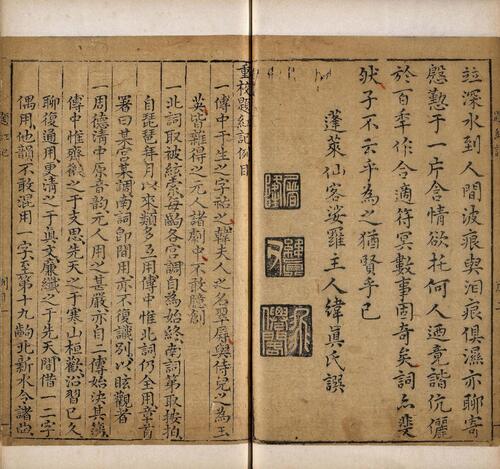 竝深水到人間波痕與泪痕俱濕亦聊寄
慇懃于一片含情欲托何人迺竟諧伉儷
於百年作合適符冥數事固奇矣詞亦斐
然子不云乎為之猶賢乎已
蓬萊仙客娑羅主人緯眞氏譔
重校題紅記例目
一傳中于生之字祐之韓夫人之名翠屏與侍兒之為玉
英皆雜得之元人諸劇中不敢臆創
一北詞取被絃索每齣各宮調自為始終南詞第取按拍
自琵琶拜月以來類多互用傳中惟北詞仍全用章首
署曰某宮某調南詞即間用亦不復識別以眩觀者
一周德清中原音韻元人用之甚嚴亦自二傳始決其藩
傳中惟齊微之于支思先天之于寒山桓歡沿習已久
聊復通用更清之于眞文廉纖之于先天間借一二字
偶用他韻不敢混用一字至第十九齣北新水令諸曲